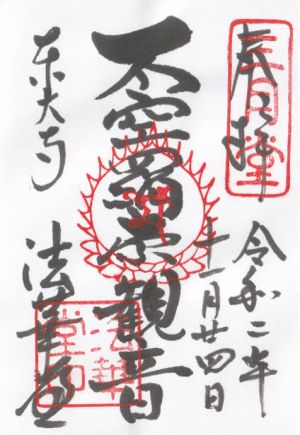 奉拝
三月堂
令和二年
十一月廿四日
不空羂索観音
東大寺
法華堂
法華堂印